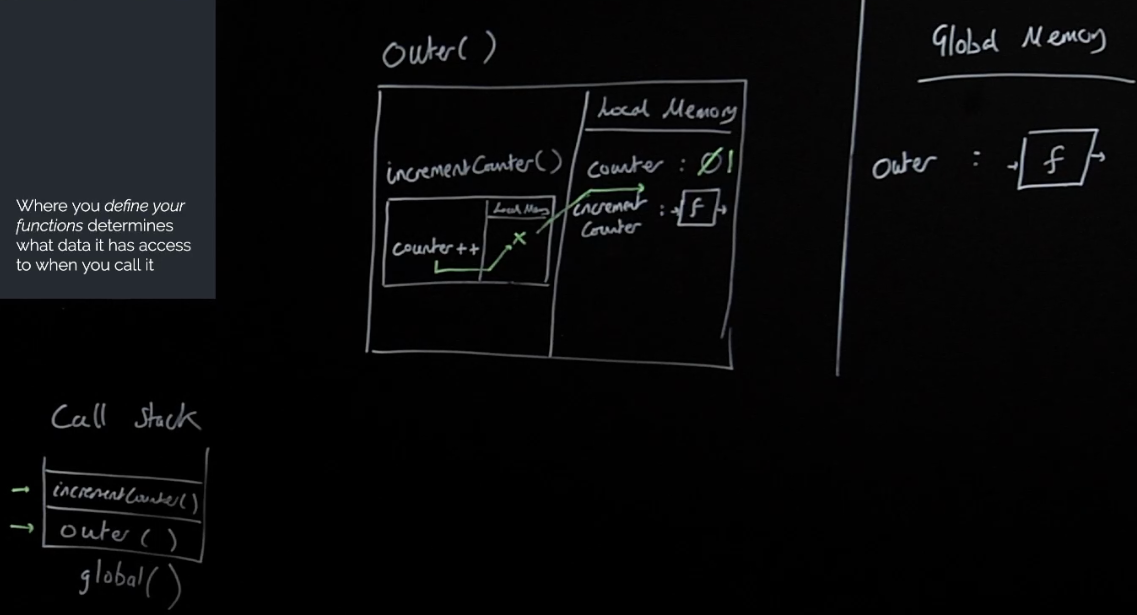 Where you define your
functions determines
what data it has access
to when you call it
outer()
Local Memory
incrementCounter()
counter : 0 1
Local Mem
counter++
x
increment : f
Counter
Global Memory
outer : f
Call Stack
incrementCounter()
outer()
global()